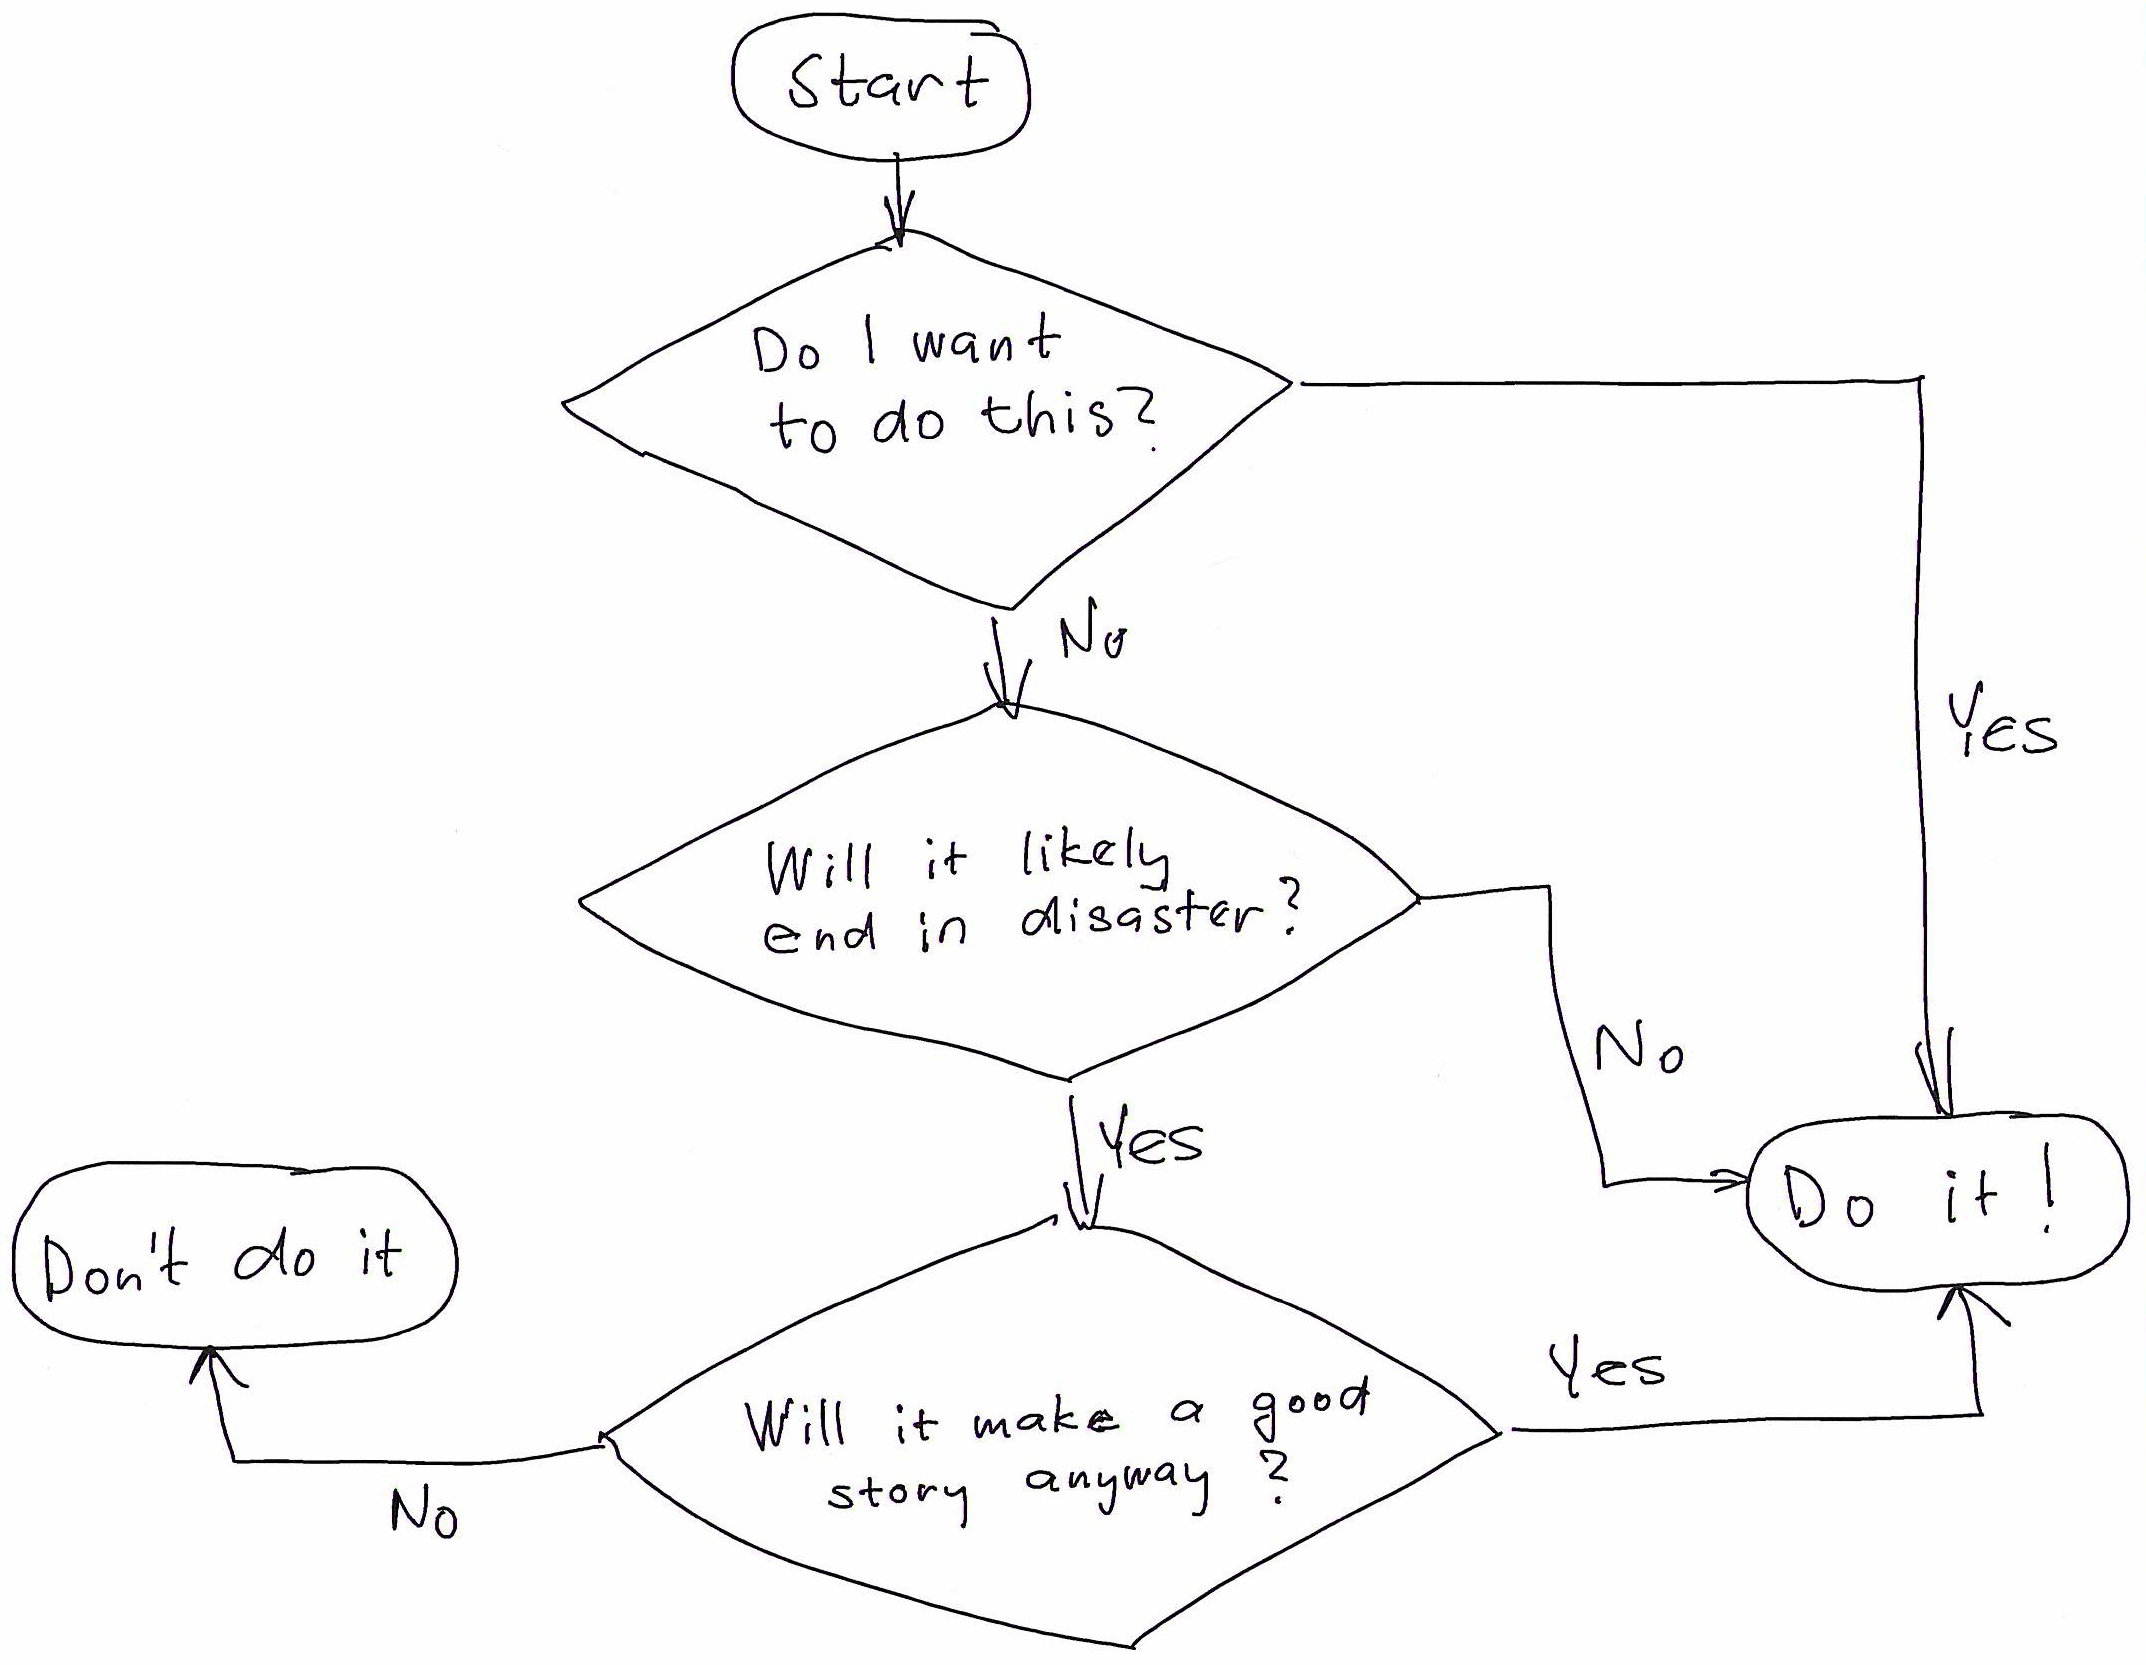 Start
Do I want
to do this?
No
Yes
Will it likely
end in disaster?
No
Yes
Do it!
Don't do it
Will it make a good
story anyway?
Yes
No